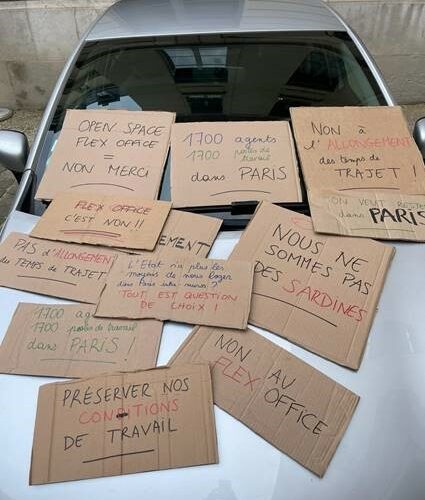 OPEN SPACE
FLEX OFFICE
=
NON MERCI
1700 agents
1700 postes de
travail
dans PARIS
NON à
l'ALLONGEMENT
des temps de
TRAJET !
FLEX OFFICE
C'EST NON !!
ON VEUT RESTER
dans PARIS
EMENT
PAS d'ALLONGEMENT
des TEMPS de TRAJET
L'Etat n'a plus les
moyens de nous loger
dans Paris intra-muros ?
TOUT EST QUESTION
DE CHOIX !
NOUS NE
SOMMES PAS
DES SARDINES
1700 agents
1700 postes de travail
dans PARIS !
NON AU
FLEX
OFFICE
PRÉSERVER NOS
CONDITIONS
DE TRAVAIL